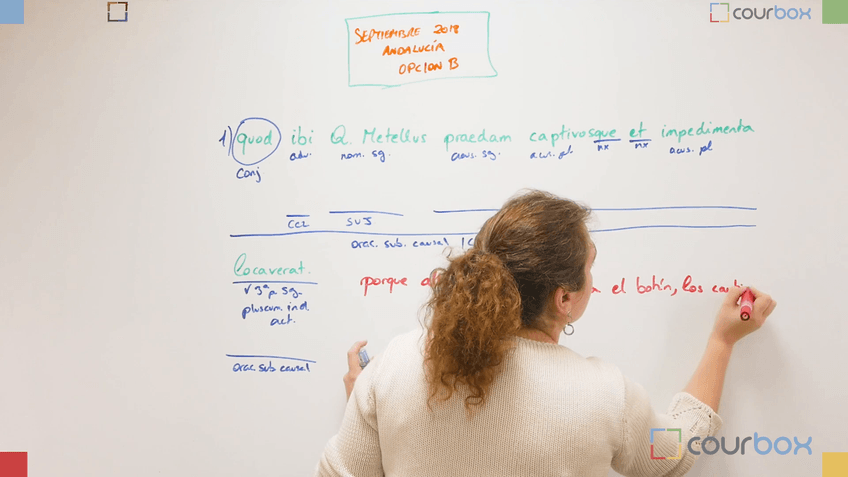 courbox
SEPTIEMBRE 2018
ANDALUCÍA
OPCION B
1) quod ibi Q. Metellus praedam captivosque et impedimenta
conj adv. nom. sg. acus. sg. acus. pl. nx nx acus. pl
CCL SUJ
orac. sub. causal
locaverat. porque el botín, los
v 3ª p sg.
pluscum. ind
act.
orac. sub causal
courbox